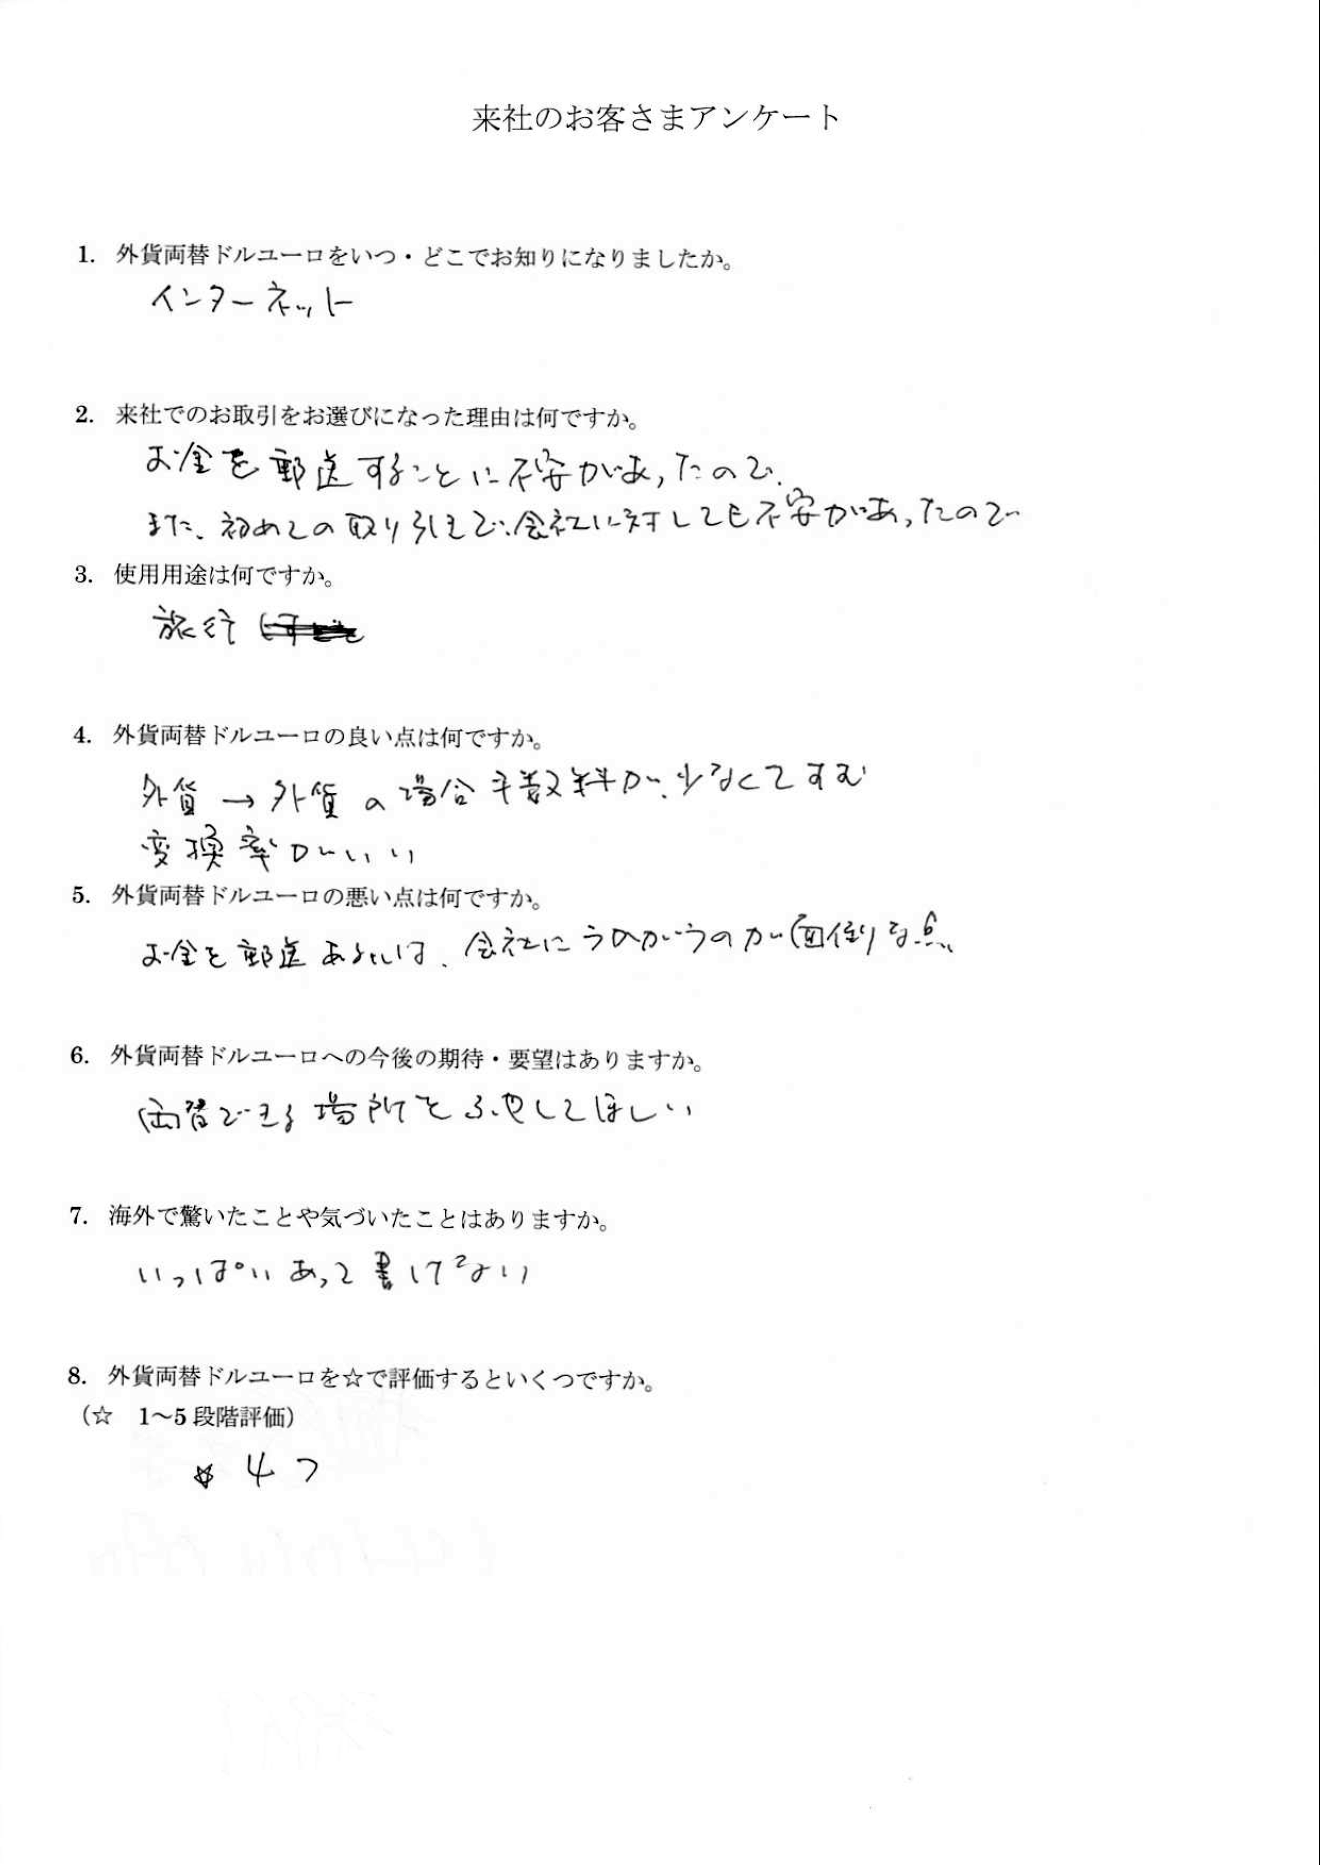 来社のお客さまアンケート
1. 外貨両替ドルユーロをいつ・どこでお知りになりましたか。
インターネット
2. 来社でのお取引をお選びになった理由は何ですか。
お金を郵送することに不安があったので、
また、初めての取り引きで、会社に対しても不安があったので
3. 使用用途は何ですか。
旅行
4. 外貨両替ドルユーロの良い点は何ですか。
外貨→外貨の場合手数料が少なくてすむ
変換率がいい
5. 外貨両替ドルユーロの悪い点は何ですか。
お金を郵送あるいは、会社にうかがうのが面倒な点
6. 外貨両替ドルユーロへの今後の期待・要望はありますか。
両替できる場所をふやしてほしい
7. 海外で驚いたことや気づいたことはありますか。
いっぱいあって書けない
8. 外貨両替ドルユーロを☆で評価するといくつですか。
（☆ 1～5段階評価）
☆ 4つ